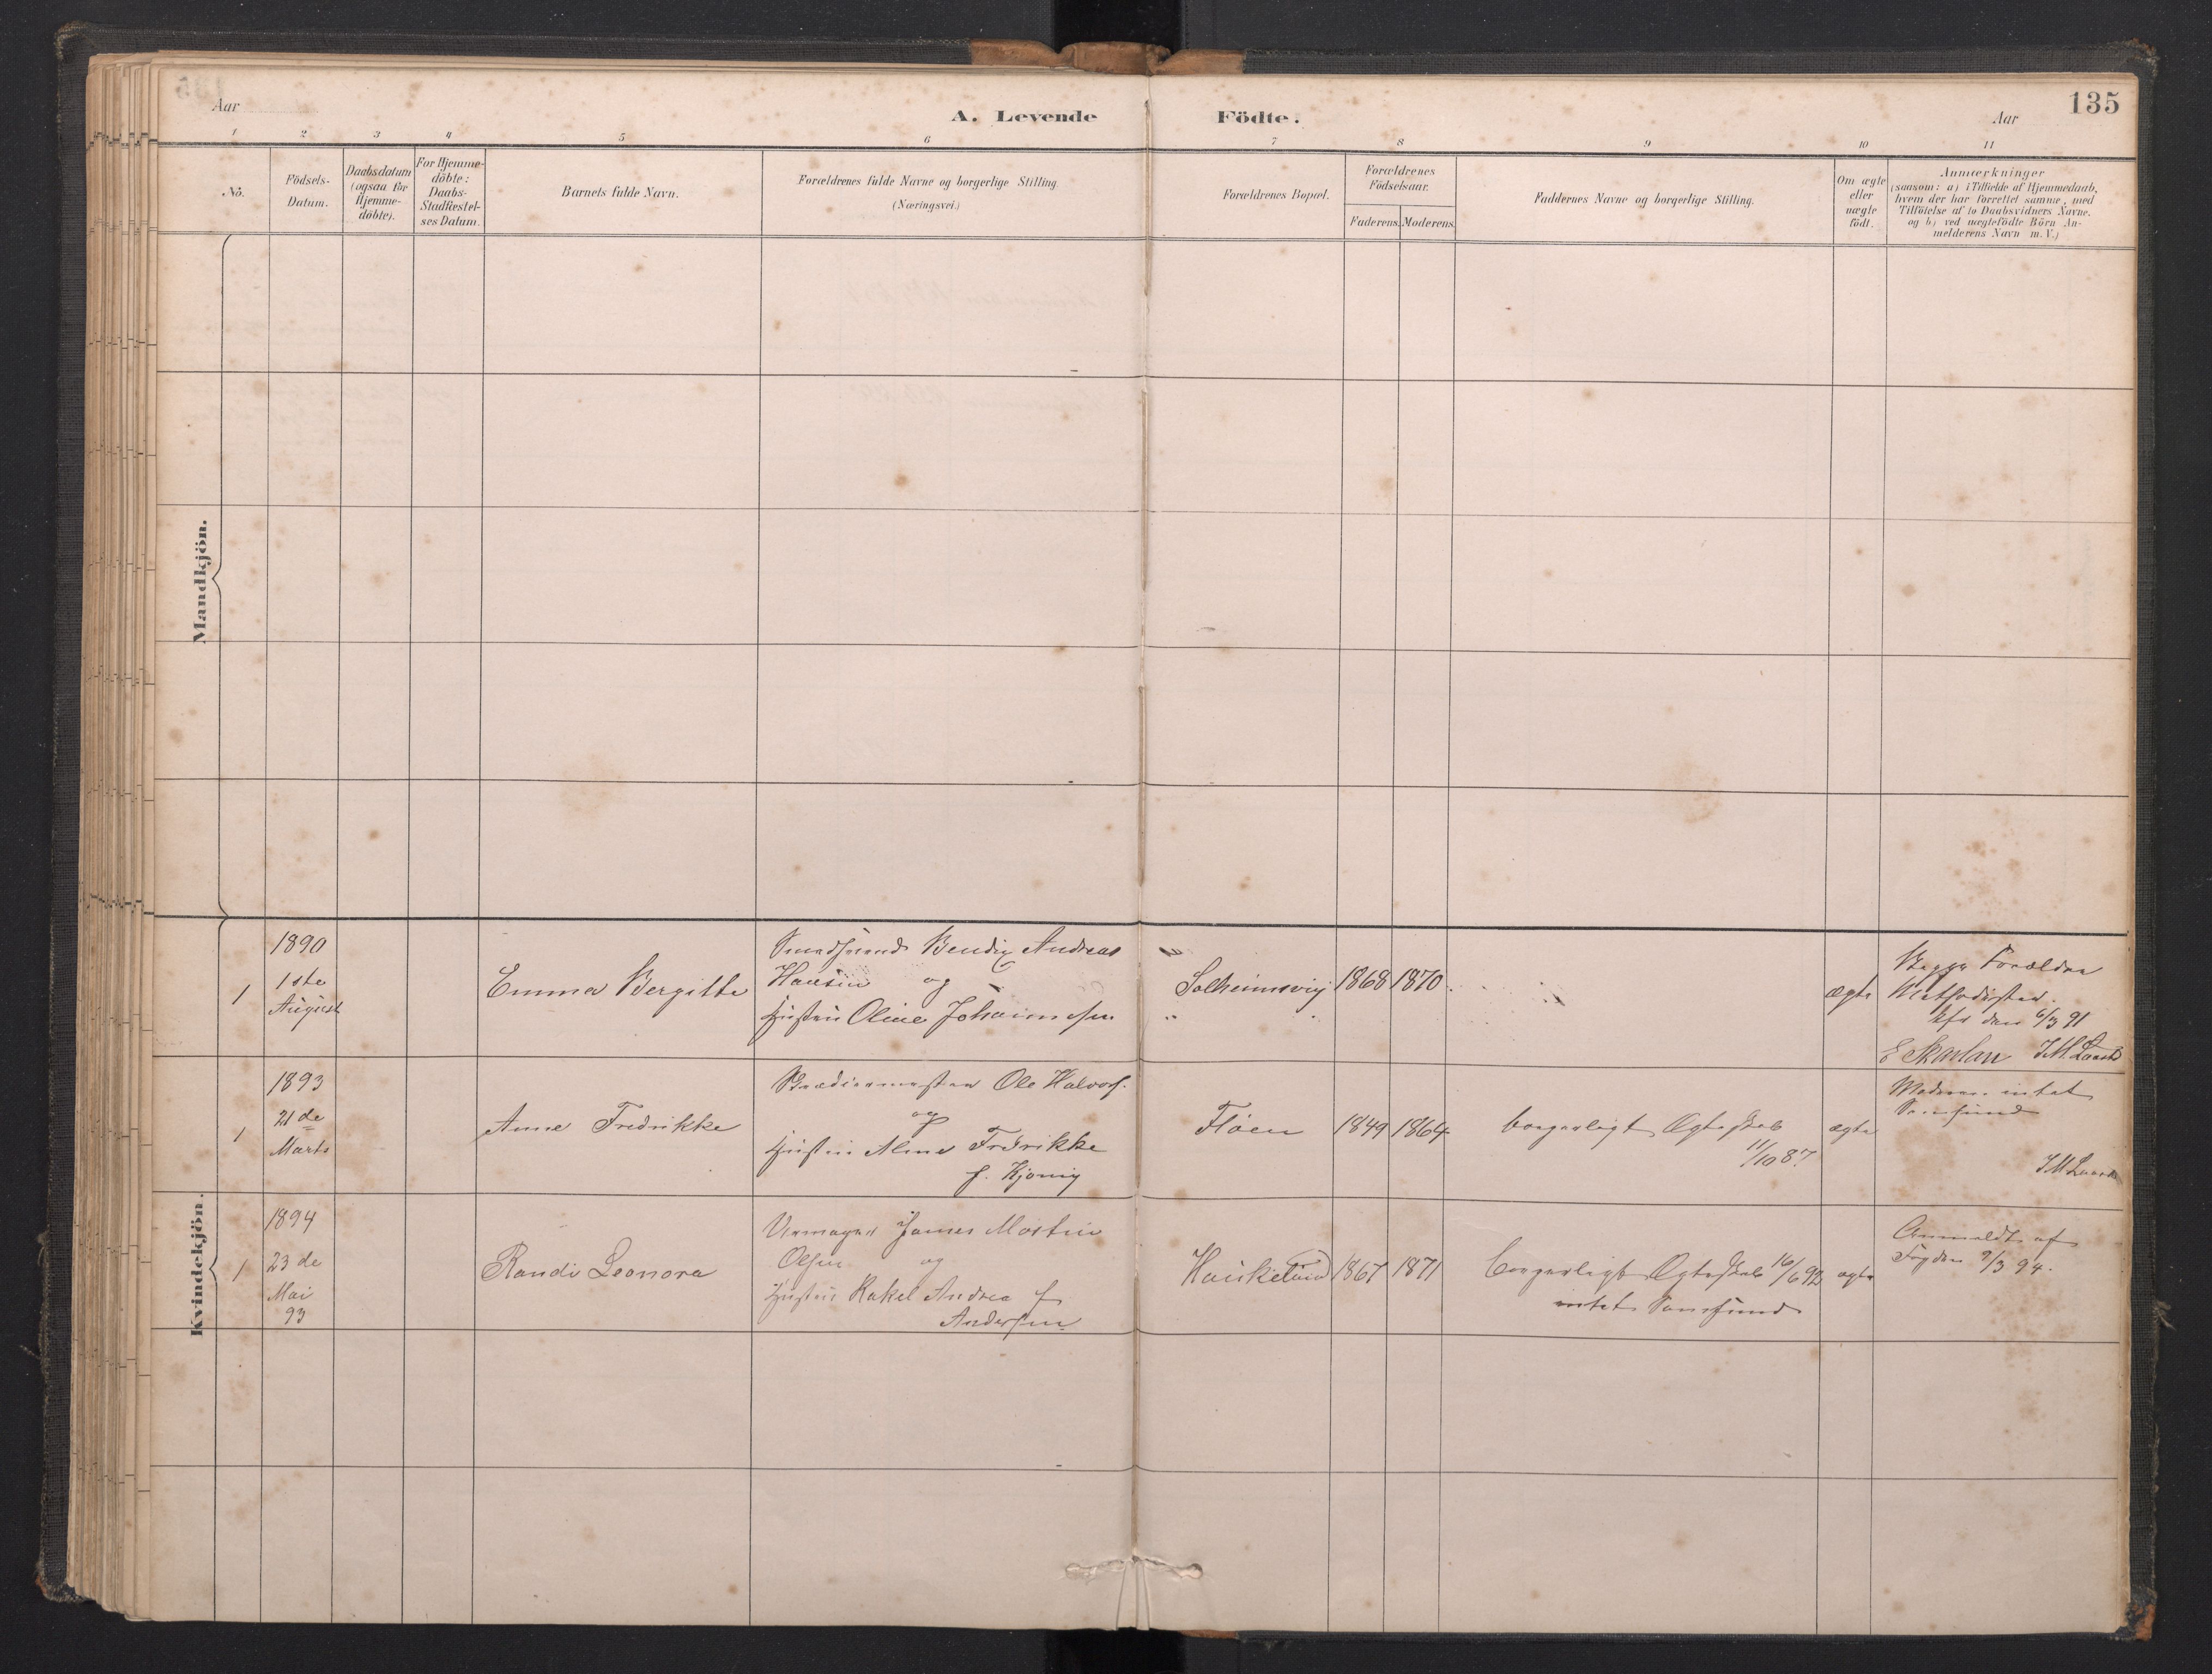 Aar
A. Levende Födte.
Aar
135
1 2 3 4 5 6 7 8 9 10 11
No.
Födsels-
Datum.
Daabsdatum
(ogsaa for
Hjemme-
döbte).
For Hjemme-
döbte:
Daabs-
Stadfæstel-
ses Datum.
Barnets fulde Navn.
Forældrenes fulde Navne og borgerlige Stilling.
(Næringsvei.)
Forældrenes Bopæl.
Forældrenes
Födselsaar.
Faderens. Moderens.
Faddernes Navne og borgerlige Stilling.
Om ægte
eller
uægte
födt.
Anmærkninger
(saasom: a) i Tilfælde af Hjemmedaab,
hvem der har forrettet samme, med
Tilföielse af to Daabsvidners Navne.
og b) ved uægtefödte Börn An-
melderens Navn m. V.)
Mandkjön.
Kvindekjön.
1
1890
1ste
August
Emma Bergitte
Bendix Andreas
Hansen og
Hustru Oline Johannesen
Solheimsvig
" "
1868 1870
ægte
Begge Forældre
Methodister.
den 6/3 91
E Skarlan J.M. Laast
1
1893
21de
Marts
Anne Fredrikke
Ole Halvors.
og
Hustru Alme Fredrikke
f. Kjonig
Fløen
1849 1864
borgerligt Ægteskab
11/10 87
ægte
Moderen intet
Samfund
J M Laast
1
1894
23de
Mai
93
Randi Leonora
James Mostue
Olsen og
Hustru Rakel Andrea f
Andersen
Haukeland
1867 1871
borgerligt Ægteskab 16/6 92
intet Samfund
ægte
Anmeldt af
Fogden 9/3 94.